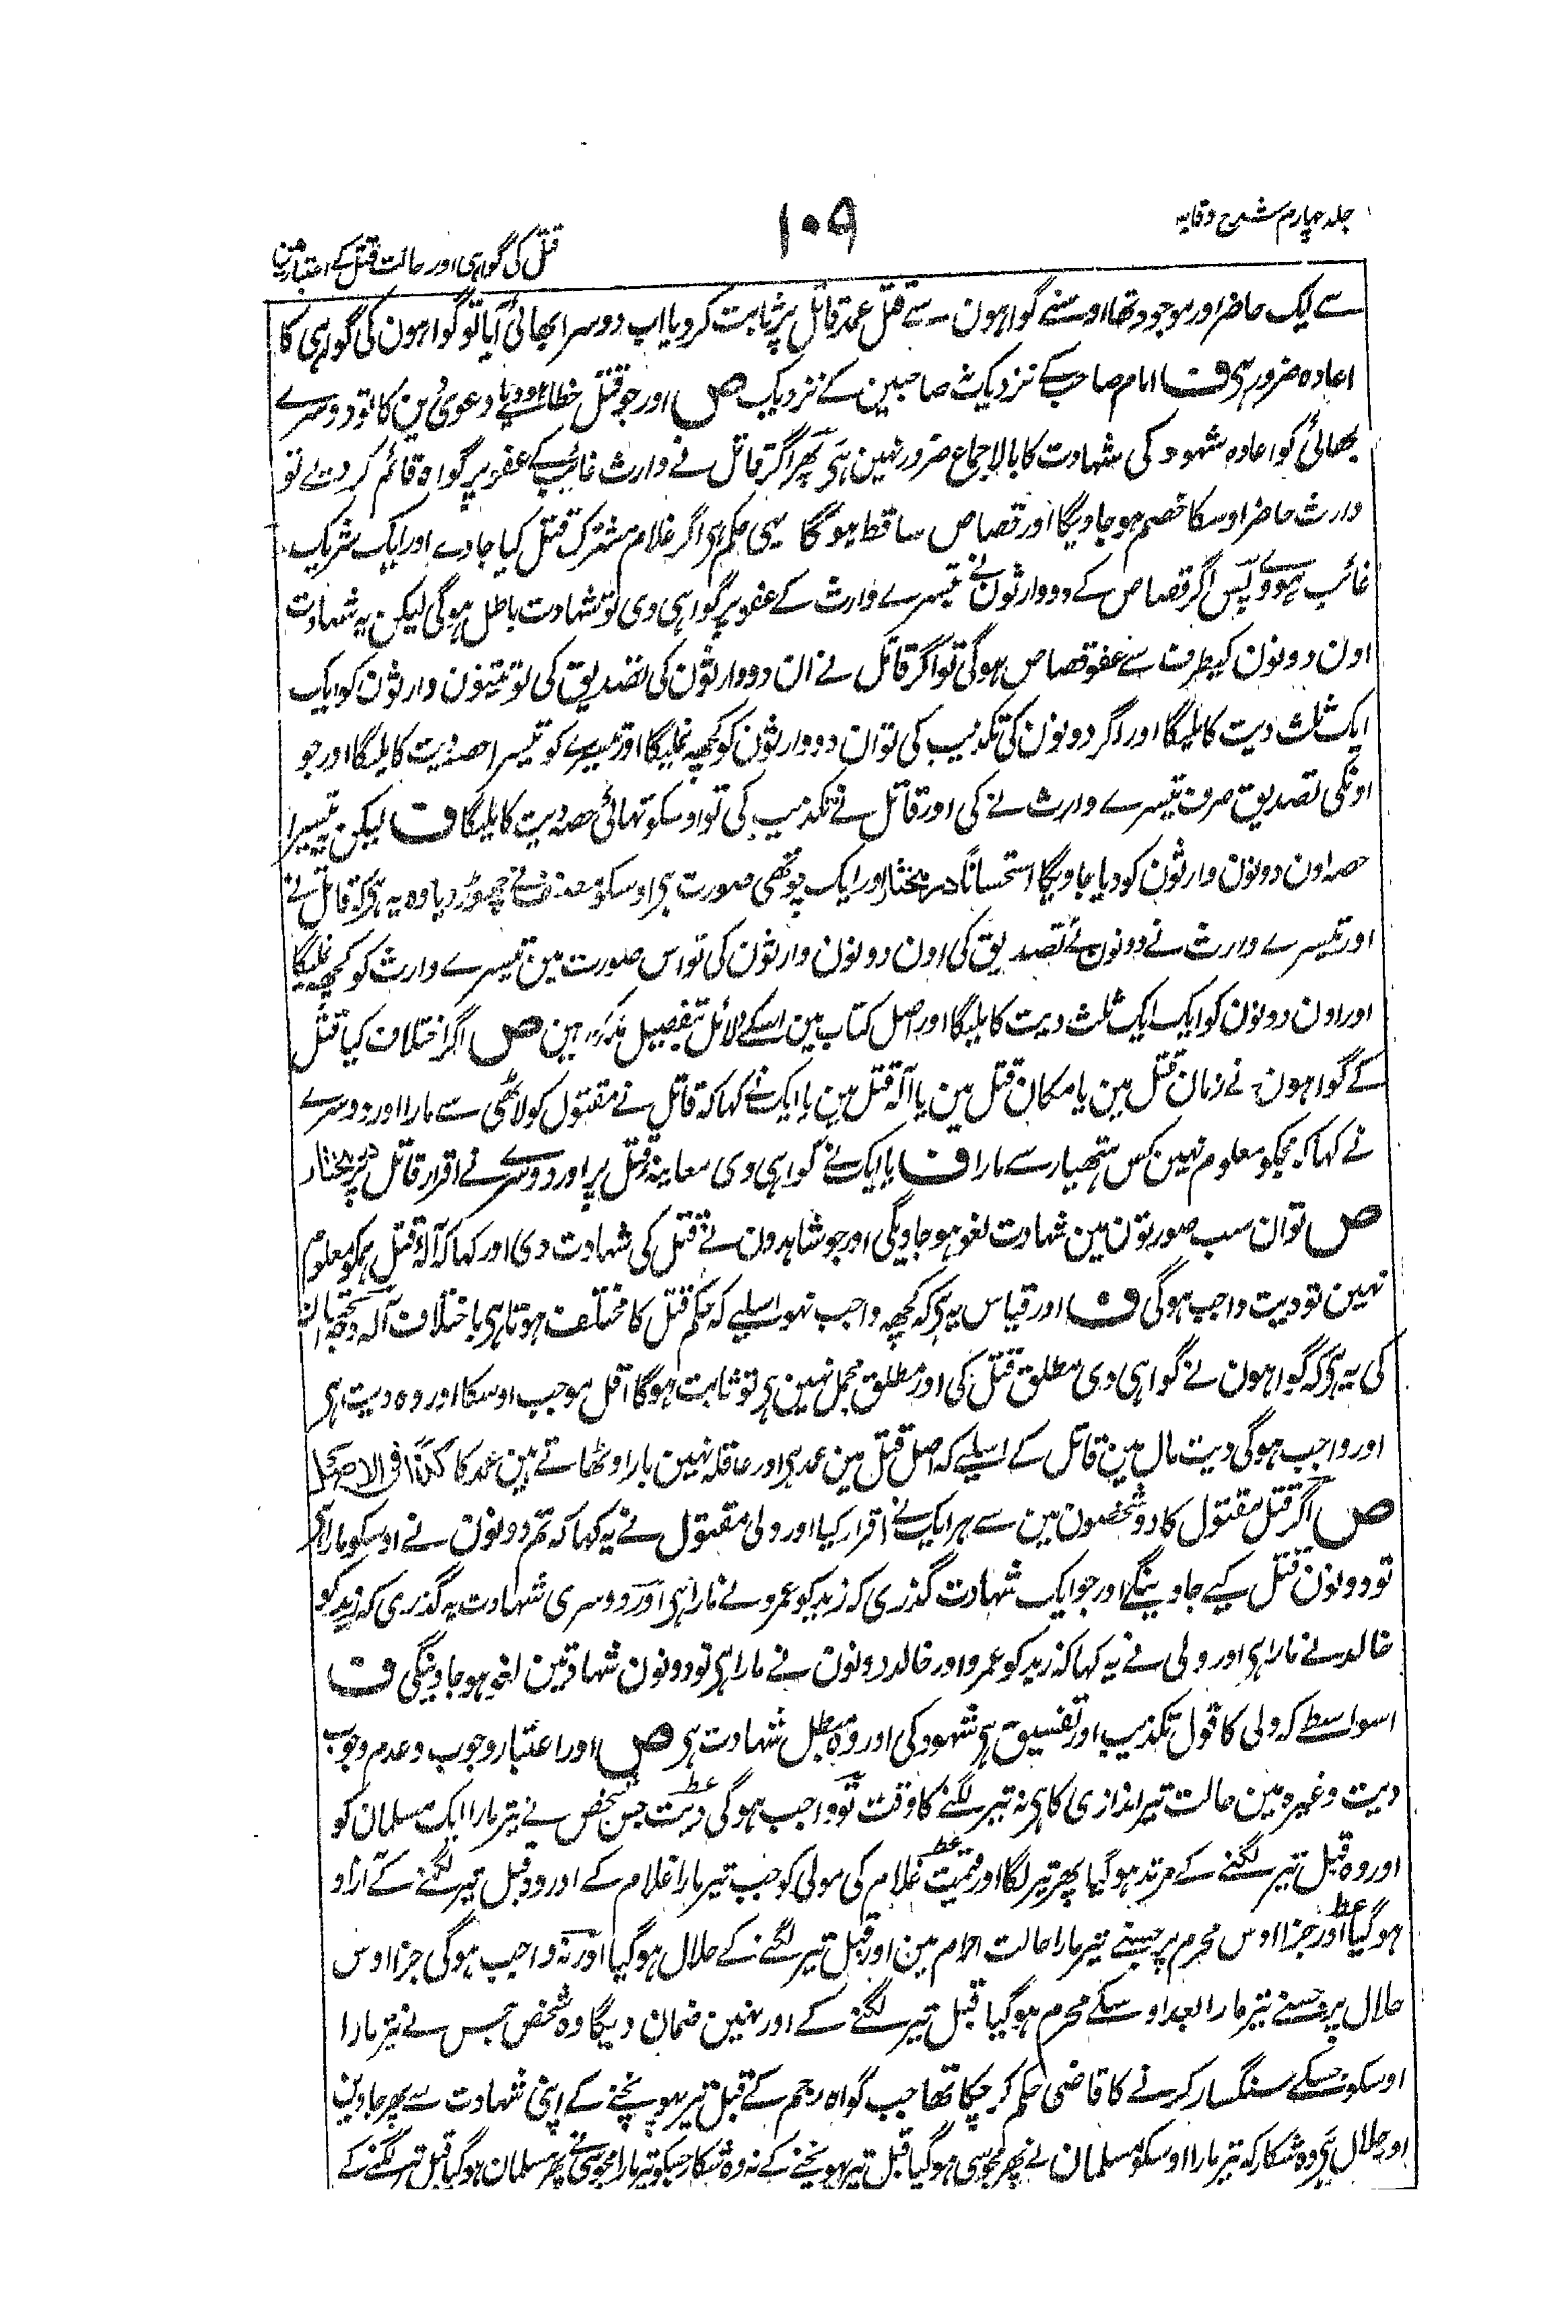 جلد چہارم شرح وقایہ
۱۰۹
قتل کی گواہی اور حالت قتل کے اعتبار مین
سے ایک حاضر اور موجود تھا اوسنے گواہون سے قتل عمد قاتل پر ثابت کردیا اب دوسرا بھائی آیا تو گواہون کی گواہی کا
اعادہ ضرور ہی ف امام صاحب کے نزدیک نہ صاحبین کے نزدیک ص اور جو قتل خطا ہووے یا دعویٰ دین کا تو دوسرے
بھائی کو اعادہ شہود کی شہادت کا بالاجماع ضرور نہین ہی پھر اگر قاتل نے وارث غائب کے عفو پر گواہ قائم کر دیے تو
وارث حاضر اوسکا خصم ہو جاویگا اور قصاص ساقط ہوگا یہی حکم ہی اگر غلام مشترک قتل کیا جاوے اور ایک شریک
غائب ہووے پس اگر قصاص کے دو وارثون نے تیسرے وارث کے عفو پر گواہی دی تو شہادت باطل ہوگی لیکن یہ شہادت
اون دونون کیطرف سے عفو قصاص ہوگی تو اگر قاتل نے ان دو وارثون کی تصدیق کی تو تینون وارثون کو ایک
ایک ثلث دیت کا ملیگا اور اگر دونون کی تکذیب کی تو ان دو وارثون کو کچھ نملیگا اور تیسرے کو تیسرا حصہ دیت کا ملیگا اور جو
اونکی تصدیق صرف تیسرے وارث نے کی اور قاتل نے تکذیب کی تو اوسکو تہائی حصہ دیت کا ملیگا ف لیکن یہ تیسرا
حصہ اون دونون وارثون کو دیا جاویگا استحساناً درمختار اور ایک چوتھی صورت ہی اوسکو مصنف نے چھوڑ دیا وہ یہ ہی کہ قاتل نے
اور تیسرے وارث نے دونون نے تصدیق کی اون دونون وارثون کی تو اس صورت مین تیسرے وارث کو کچھ نملیگا
اور اون دونون کو ایک ایک ثلث دیت کا ملیگا اور اصل کتاب مین اسکے دلائل بتفصیل مذکور ہین ص اگر اختلاف کیا قتل
کے گواہون نے زمان قتل مین یا مکان قتل مین یا آلہ قتل مین یا ایک نے کہا کہ قاتل نے مقتول کو لاٹھی سے مارا اور دوسرے
نے کہا کہ مجکو معلوم نہین کس ہتھیار سے مارا ف یا ایک نے گواہی دی معاینہ قتل پر اور دوسرے نے اقرار قاتل پر درمختار
ص تو ان سب صورتون مین شہادت لغو ہو جاویگی اور جو شاہدون نے قتل کی شہادت دی اور کہا کہ آلہ قتل ہمکو معلوم
نہین تو دیت واجب ہوگی ف اور قیاس یہ ہی کہ کچھ واجب نہو اسلیے کہ حکم قتل کا مختلف ہوتا ہی باختلاف آلہ وجہ استحسان
کی یہ ہی کہ گواہون نے گواہی دی مطلق قتل کی اور مطلق مجمل نہین ہی تو ثابت ہوگا اقل موجب اوسکا اور وہ دیت ہی
اور واجب ہوگی دیت مال مین قاتل کے اسلیے کہ اصل قتل مین عمد ہی اور عاقلہ نہین بار اوٹھاتے ہین عمد کا کذا فی الاصل
ص اگر قتل مقتول کا دو شخصون مین سے ہر ایک نے اقرار کیا اور ولی مقتول نے یہ کہا کہ تم دونون نے اوسکو مارا ہی
تو دونون قتل کیے جاوینگے اور جو ایک شہادت گذری کہ زید کو عمرو نے مارا ہی اور دوسری شہادت یہ گذری کہ زید کو
خالد نے مارا ہی اور ولی نے یہ کہا کہ زید کو عمرو اور خالد دونون نے مارا ہی تو دونون شہادتین لغو ہو جاوینگی ف
اسواسطے کہ ولی کا قول تکذیب اور تفسیق ہی شہود کی اور وہ مبطل شہادت ہی ص اور اعتبار وجوب وعدم وجوب
دیت وغیرہ مین حالت تیر اندازی کا ہی نہ تیر لگنے کا وقت تو واجب ہوگی دیت جس شخص نے تیر مارا ایک مسلمان کو
اور وہ قبل تیر لگنے کے مرتد ہو گیا پھر تیر لگا اور قیمت غلام کی مولی کو جب تیر مارا غلام کے اور وہ قبل تیر لگنے کے آزاد
ہو گیا اور جزا اوس محرم پر جسنے تیر مارا حالت احرام مین اور قبل تیر لگنے کے حلال ہو گیا اور نہ واجب ہوگی جزا اوس
حلال پر جسنے تیر مارا بعد اوسکے محرم ہو گیا قبل تیر لگنے کے اور نہین ضمان دیگا وہ شخص جس نے تیر مارا
اوسکو جسکے سنگسار کرنے کا قاضی حکم کر چکا تھا جب گواہ رجم کے قبل تیر پہونچنے کے اپنی شہادت سے پھر جاوین
اور حلال ہی وہ شکار کہ تیر مارا اوسکو مسلمان نے پھر مجوسی ہو گیا قبل تیر پہونچنے کے نہ وہ شکار جسکو تیر مارا مجوسی نے پھر مسلمان ہو گیا قبل تیر لگنے کے